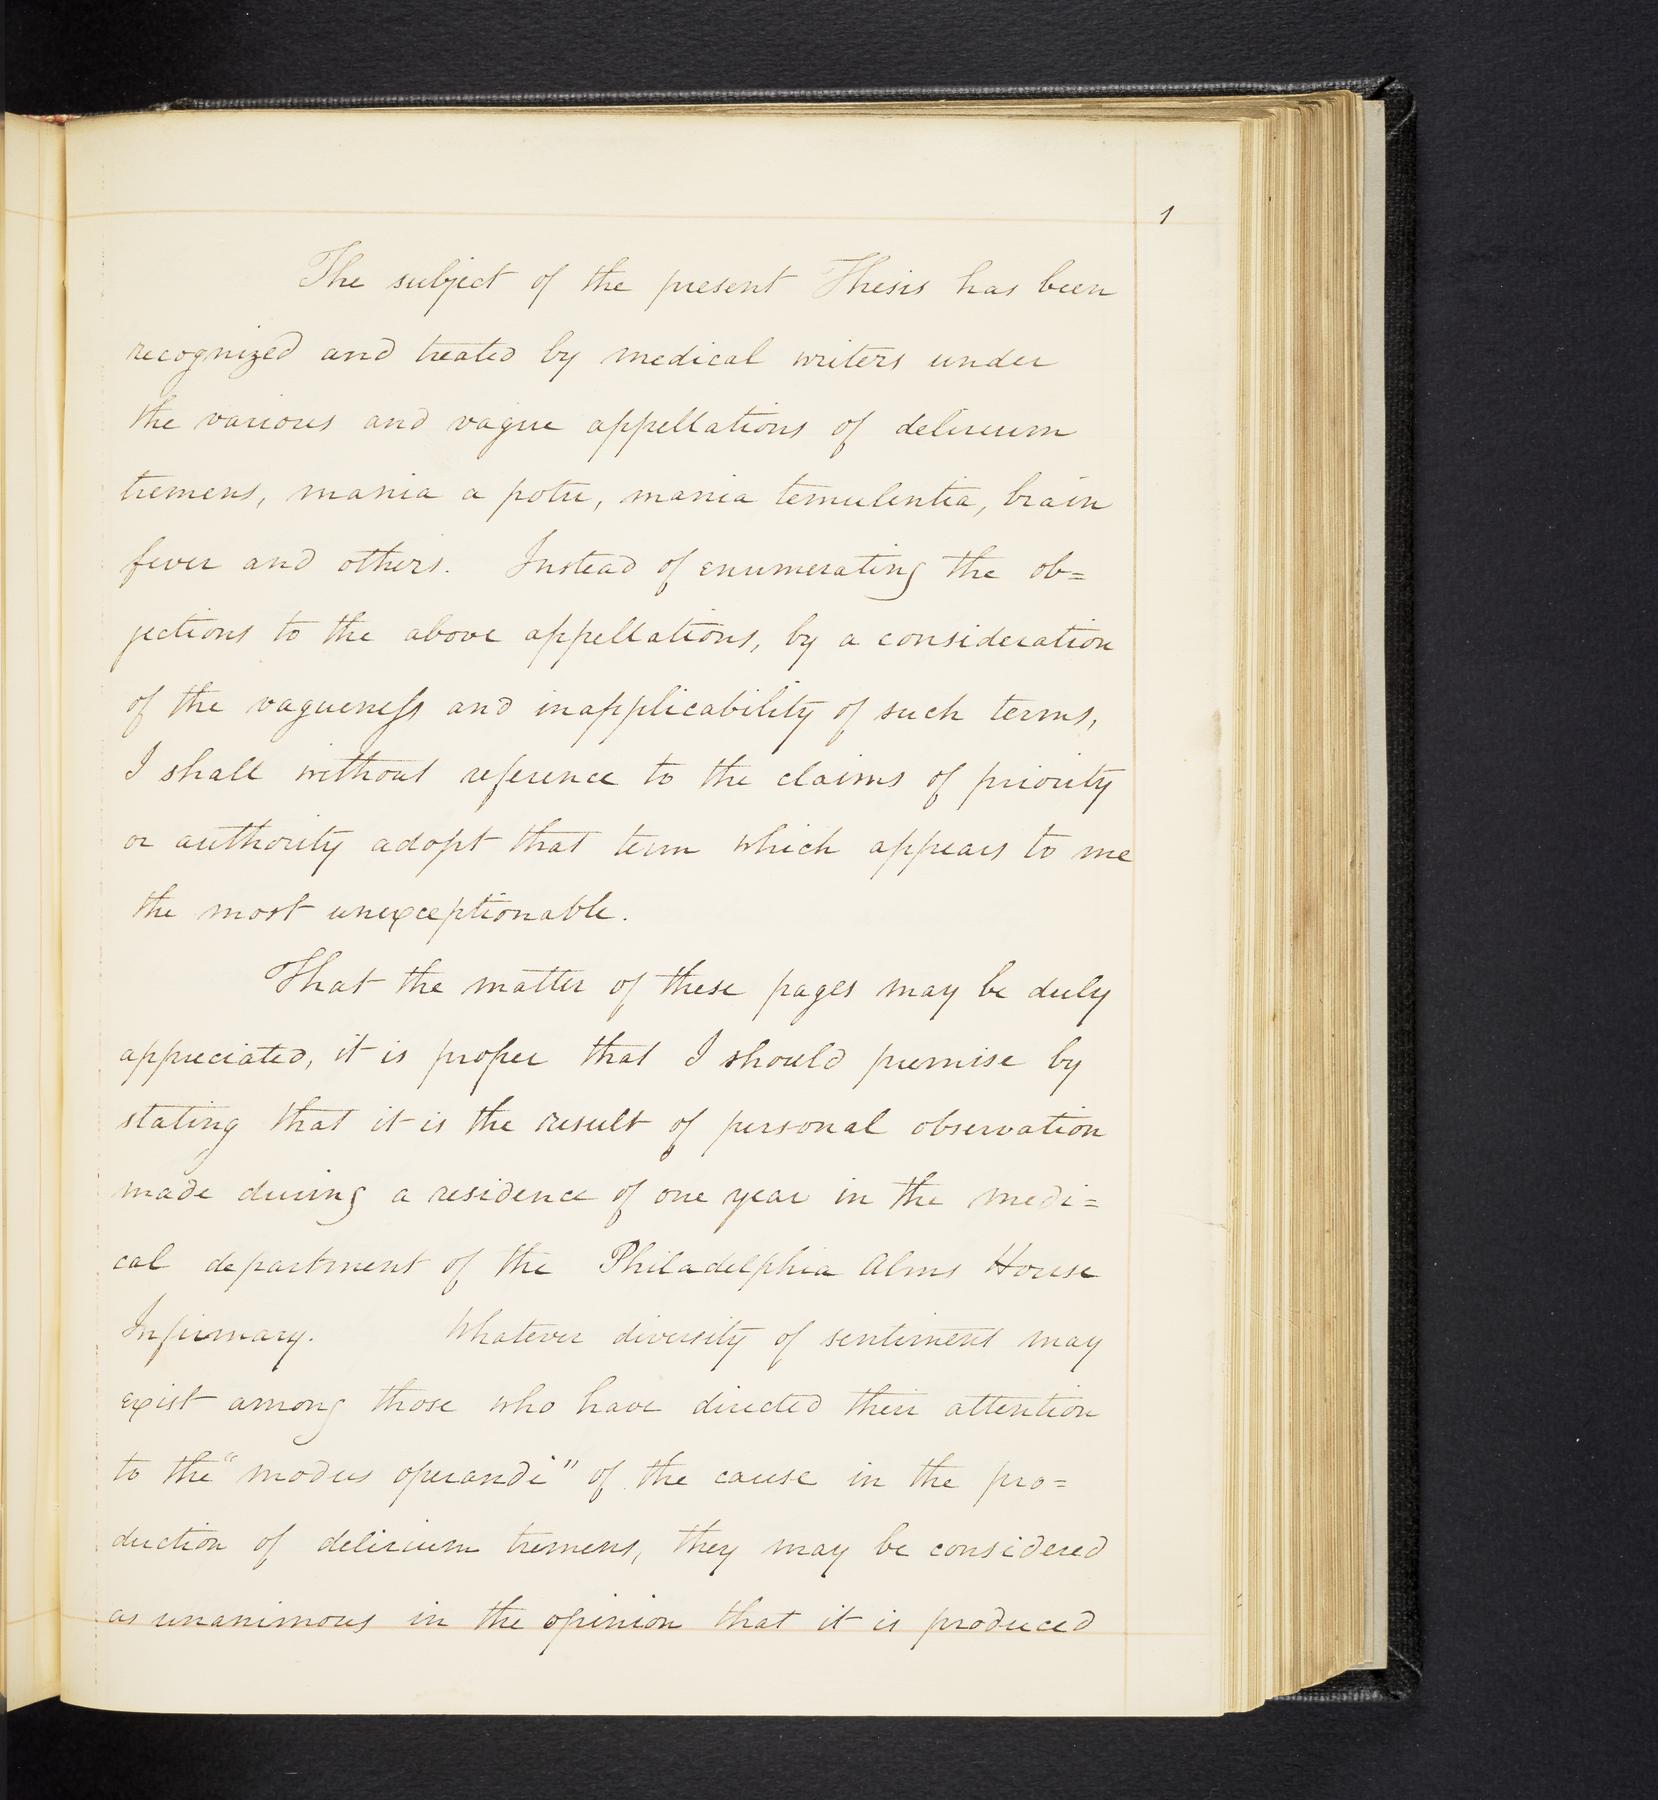 1
The subject of the present Thesis has been
recognized and treated by medical writers under
the various and vague appellations of delirium
tremens, mania a potu, mania temulentia, brain
fever and others. Instead of enumerating the ob=
jections to the above appellations, by a consideration
of the vagueness and inapplicability of such terms,
I shall without reference to the claims of priority
or authority adopt that term which appears to me
the most unexceptionable.
That the matter of these pages may be duly
appreciated, it is proper that I should premise by
stating that it is the result of personal observation
made during a residence of one year in the medi=
cal department of the Philadelphia Alms House
Infirmary. Whatever diversity of sentiment may
exist among those who have directed their attention
to the "modus operandi" of the cause in the pro=
duction of delirium tremens, they may be considered
as unanimous in the opinion that it is produced